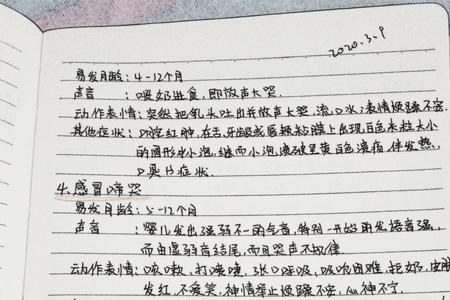 2020.3.9
易发月龄：4-12个月
声音：喂奶进食，即放声大哭.
动作表情：突然把乳头吐出并放声大哭，流口水，表情烦躁不安.
其他症状：口腔红肿，在舌、牙龈或唇颊粘膜上出现白色米粒大小
的圆形小泡，继而小泡溃破呈黄白色溃疡，伴发热，
口臭等症状.
4.感冒啼哭
易发月龄：5-12个月
声音：婴儿发出强弱不一的气音，特别一开始用发语音强，
而由显弱音结尾，而且哭声不规律.
动作表情：咳嗽、打喷嚏，张口呼吸，吸吮困难，拒奶，皮肤
发红，不爱笑，神情举止烦躁不安，心神不宁.